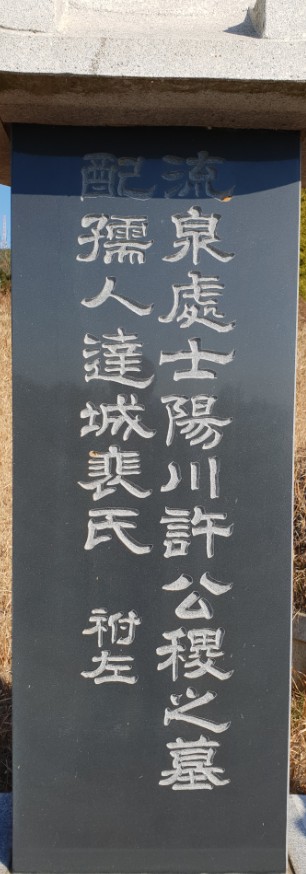 流泉處士陽川許公稷之墓
配孺人達城裴氏 祔左